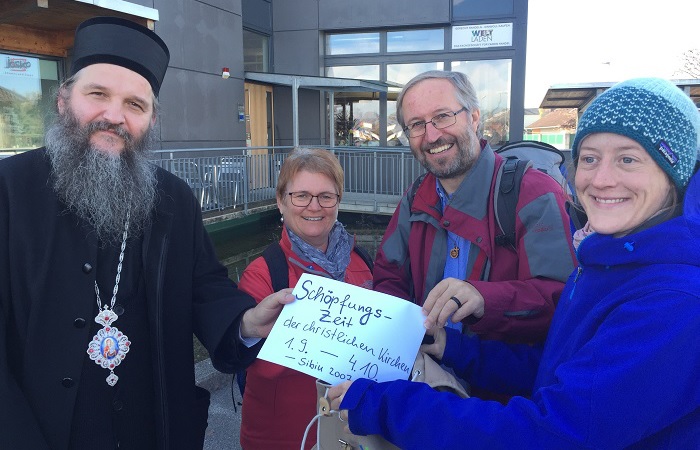 WELT
LADEN
Schöpfungs-
Zeit
der christlichen Kirchen
1.9. — 4.10.
– Sibiu 2007
patagonia